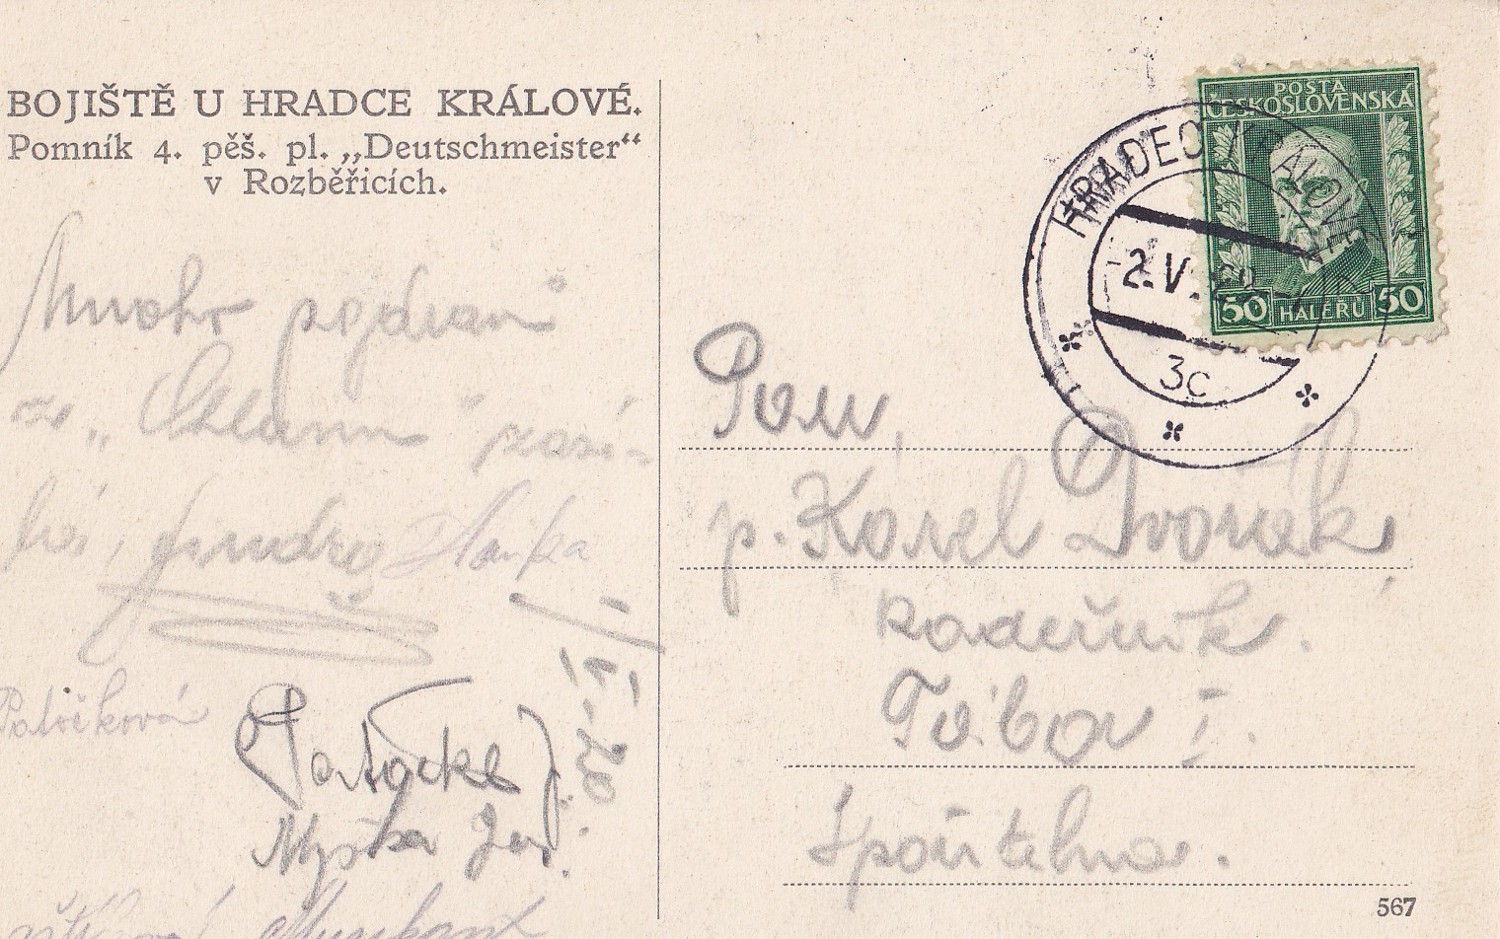 BOJIŠTĚ U HRADCE KRÁLOVÉ.
Pomník 4. pěš. pl. „Deutschmeister“
v Rozběřicích.
Mnoho pozdravů
ze „Chlumu" zasí-
lá, Jindra
Patočková
Patočka J.
Myška Jos.
Muzikant
POŠTA
ČESKOSLOVENSKÁ
50 HALÉŘŮ 50
HRADEC KRÁLOVÉ
2.V.
3c
Pan,
p. Karel Dvořák,
kadeřník.
Tábor I.
Spořitelna.
567